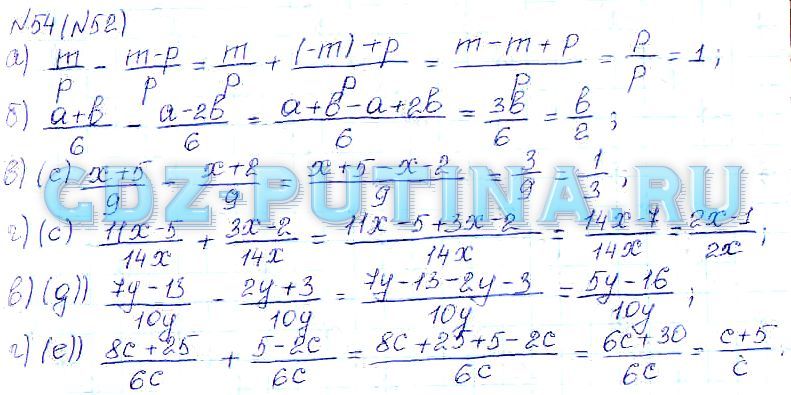 №54(№52)
а) m/p - m-p/p = m/p + (-m)+p/p = m-m+p/p = p/p = 1;
б) a+b/6 - a-2b/6 = a+b-a+2b/6 = 3b/6 = b/2;
в) (с) x+5/9 - x+2/9 = x+5-x-2/9 = 3/9 = 1/3;
GDZ-PUTINA.RU
г) (с) 11x-5/14x + 3x-2/14x = 11x-5+3x-2/14x = 14x-7/14x = 2x-1/2x;
в) (д)) 7y-13/10y - 2y+3/10y = 7y-13-2y-3/10y = 5y-16/10y;
г) (е)) 8c+25/6c + 5-2c/6c = 8c+25+5-2c/6c = 6c+30/6c = c+5/c.